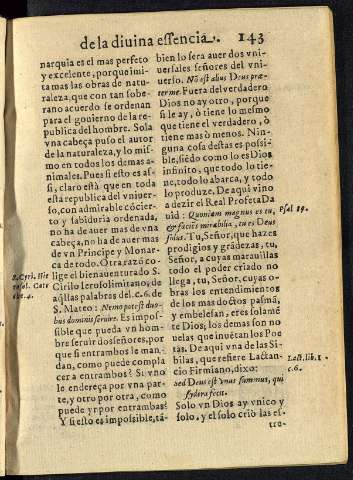 de la diuina essencia. 143
narquia es el mas perfeto
y excelente, porque imi-
ta mas las obras de natu-
raleza, que con tan sobe-
rano acuerdo se ordenan
para el gouierno de la re-
publica del hombre. Sola
vna cabeça puso el autor
de la naturaleza, y lo mis-
mo en todos los demas a-
nimales. Pues si esto es as-
si, claro està que en toda
està republica del vniuer-
so, con admirable cōcier-
to y sabiduria ordenada,
no ha de auer mas de vna
cabeça, no ha de auer mas
de vn Principe y Monar-
ca de todo. Otra razō co-
lige el bienauenturado S.
Cirilo Ierosolimitano, de
aq̃llas palabras del. c. 6. de
S. Mateo: Nemo potest duo-
bus dominis seruire. Es impos-
sible que pueda vn hōm-
bre seruir dos señores, por
que si entrambos le man-
dan, como puede compla
cer a entrambos? Si vno
le endereça por vna par-
te, y otro por otra, como
puede yr por entrambas?
Y si esto es impossible, tā-
S. Cyri. Hie
rosol. Cate
che. 4.
bien lo sera auer dos vni-
uersales señores del vni-
uerso. Nō est alius Deus præ-
ter me. Fuera del verdadero
Dios no ay otro, porque
si le ay, ò tiene lo mesmo
que tiene el verdadero, ò
tiene mas ò menos. Nin-
guna cosa destas es possi-
ble, siēdo como lo es Dios
infinito, que todo lo tie-
ne, todo lo abarca, y todo
lo produze. De aqui vino
a dezir el Real Profeta Da
uid: Quoniam magnus es tu,
& faciēs mirabilia, tu es Deus
solus. Tu, Señor, que hazes
prodigios y grādezas, tu,
Señor, a cuyas marauillas
todo el poder criado no
llega, tu, Señor, cuyas o-
bras los entendimientos
de los mas doctos pasmā,
y embelesan, eres solamē
te Dios; los demas son no
uelas que inuētan los Poe
tas. De aqui vna de las Si-
bilas, que refiere Lactan-
cio Firmiano, dixo:
sed Deus est vnus summus, qui
sydera fecit.
Solo vn Dios ay vnico y
solo, y el solo criò las es-
tre-
Psal 85.
Lact. lib. 1
c. 6.